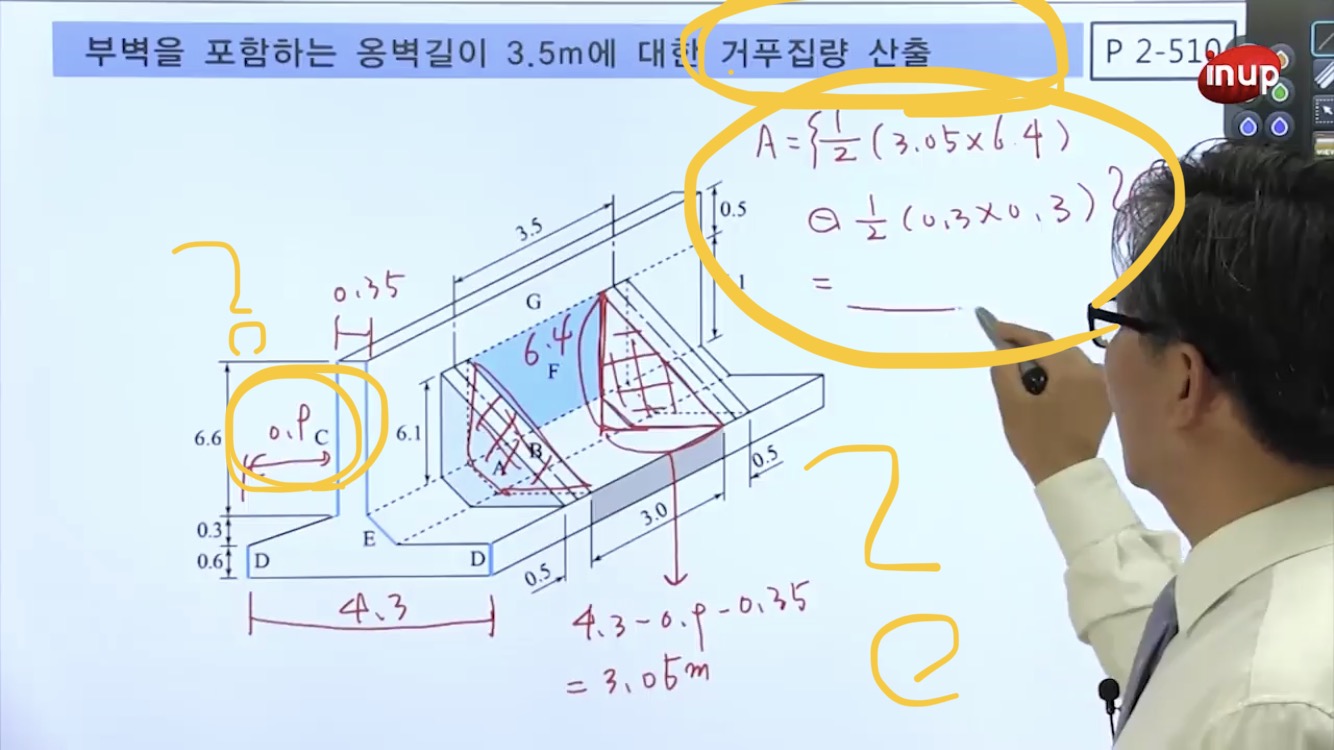 부벽을 포함하는 옹벽길이 3.5m에 대한 거푸집량 산출
P 2-510
inup
A={1/2(3.05×6.4)
⊖ 1/2(0.3×0.3)}
=
3.5
0.5
0.35
G
6.4
F
0.9
C
6.6
6.1
A
B
0.5
3.0
0.3
E
0.6
D
D
0.5
4.3
4.3-0.9-0.35
=3.05m
?
?